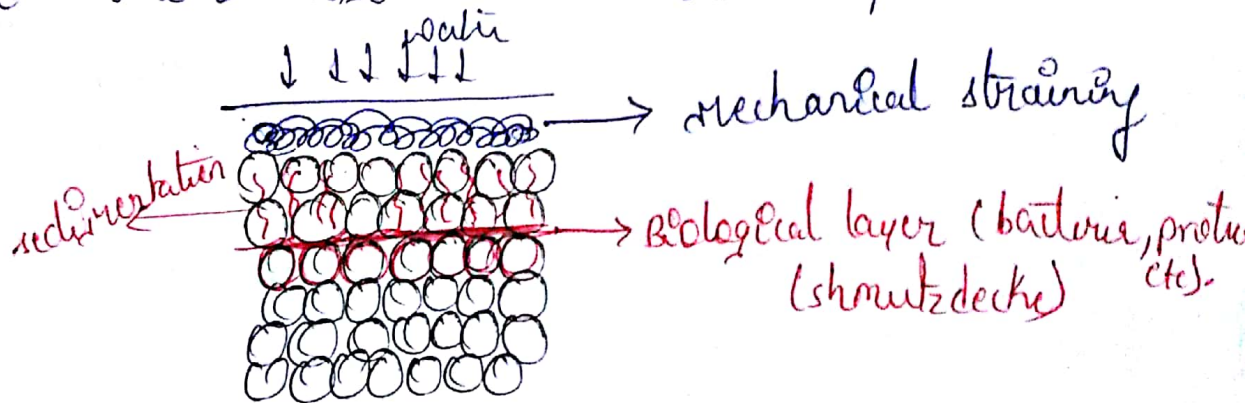 water
mechanical straining
sedimentation
Biological layer (bacteria, proto
etc).
(shmutzdecke)